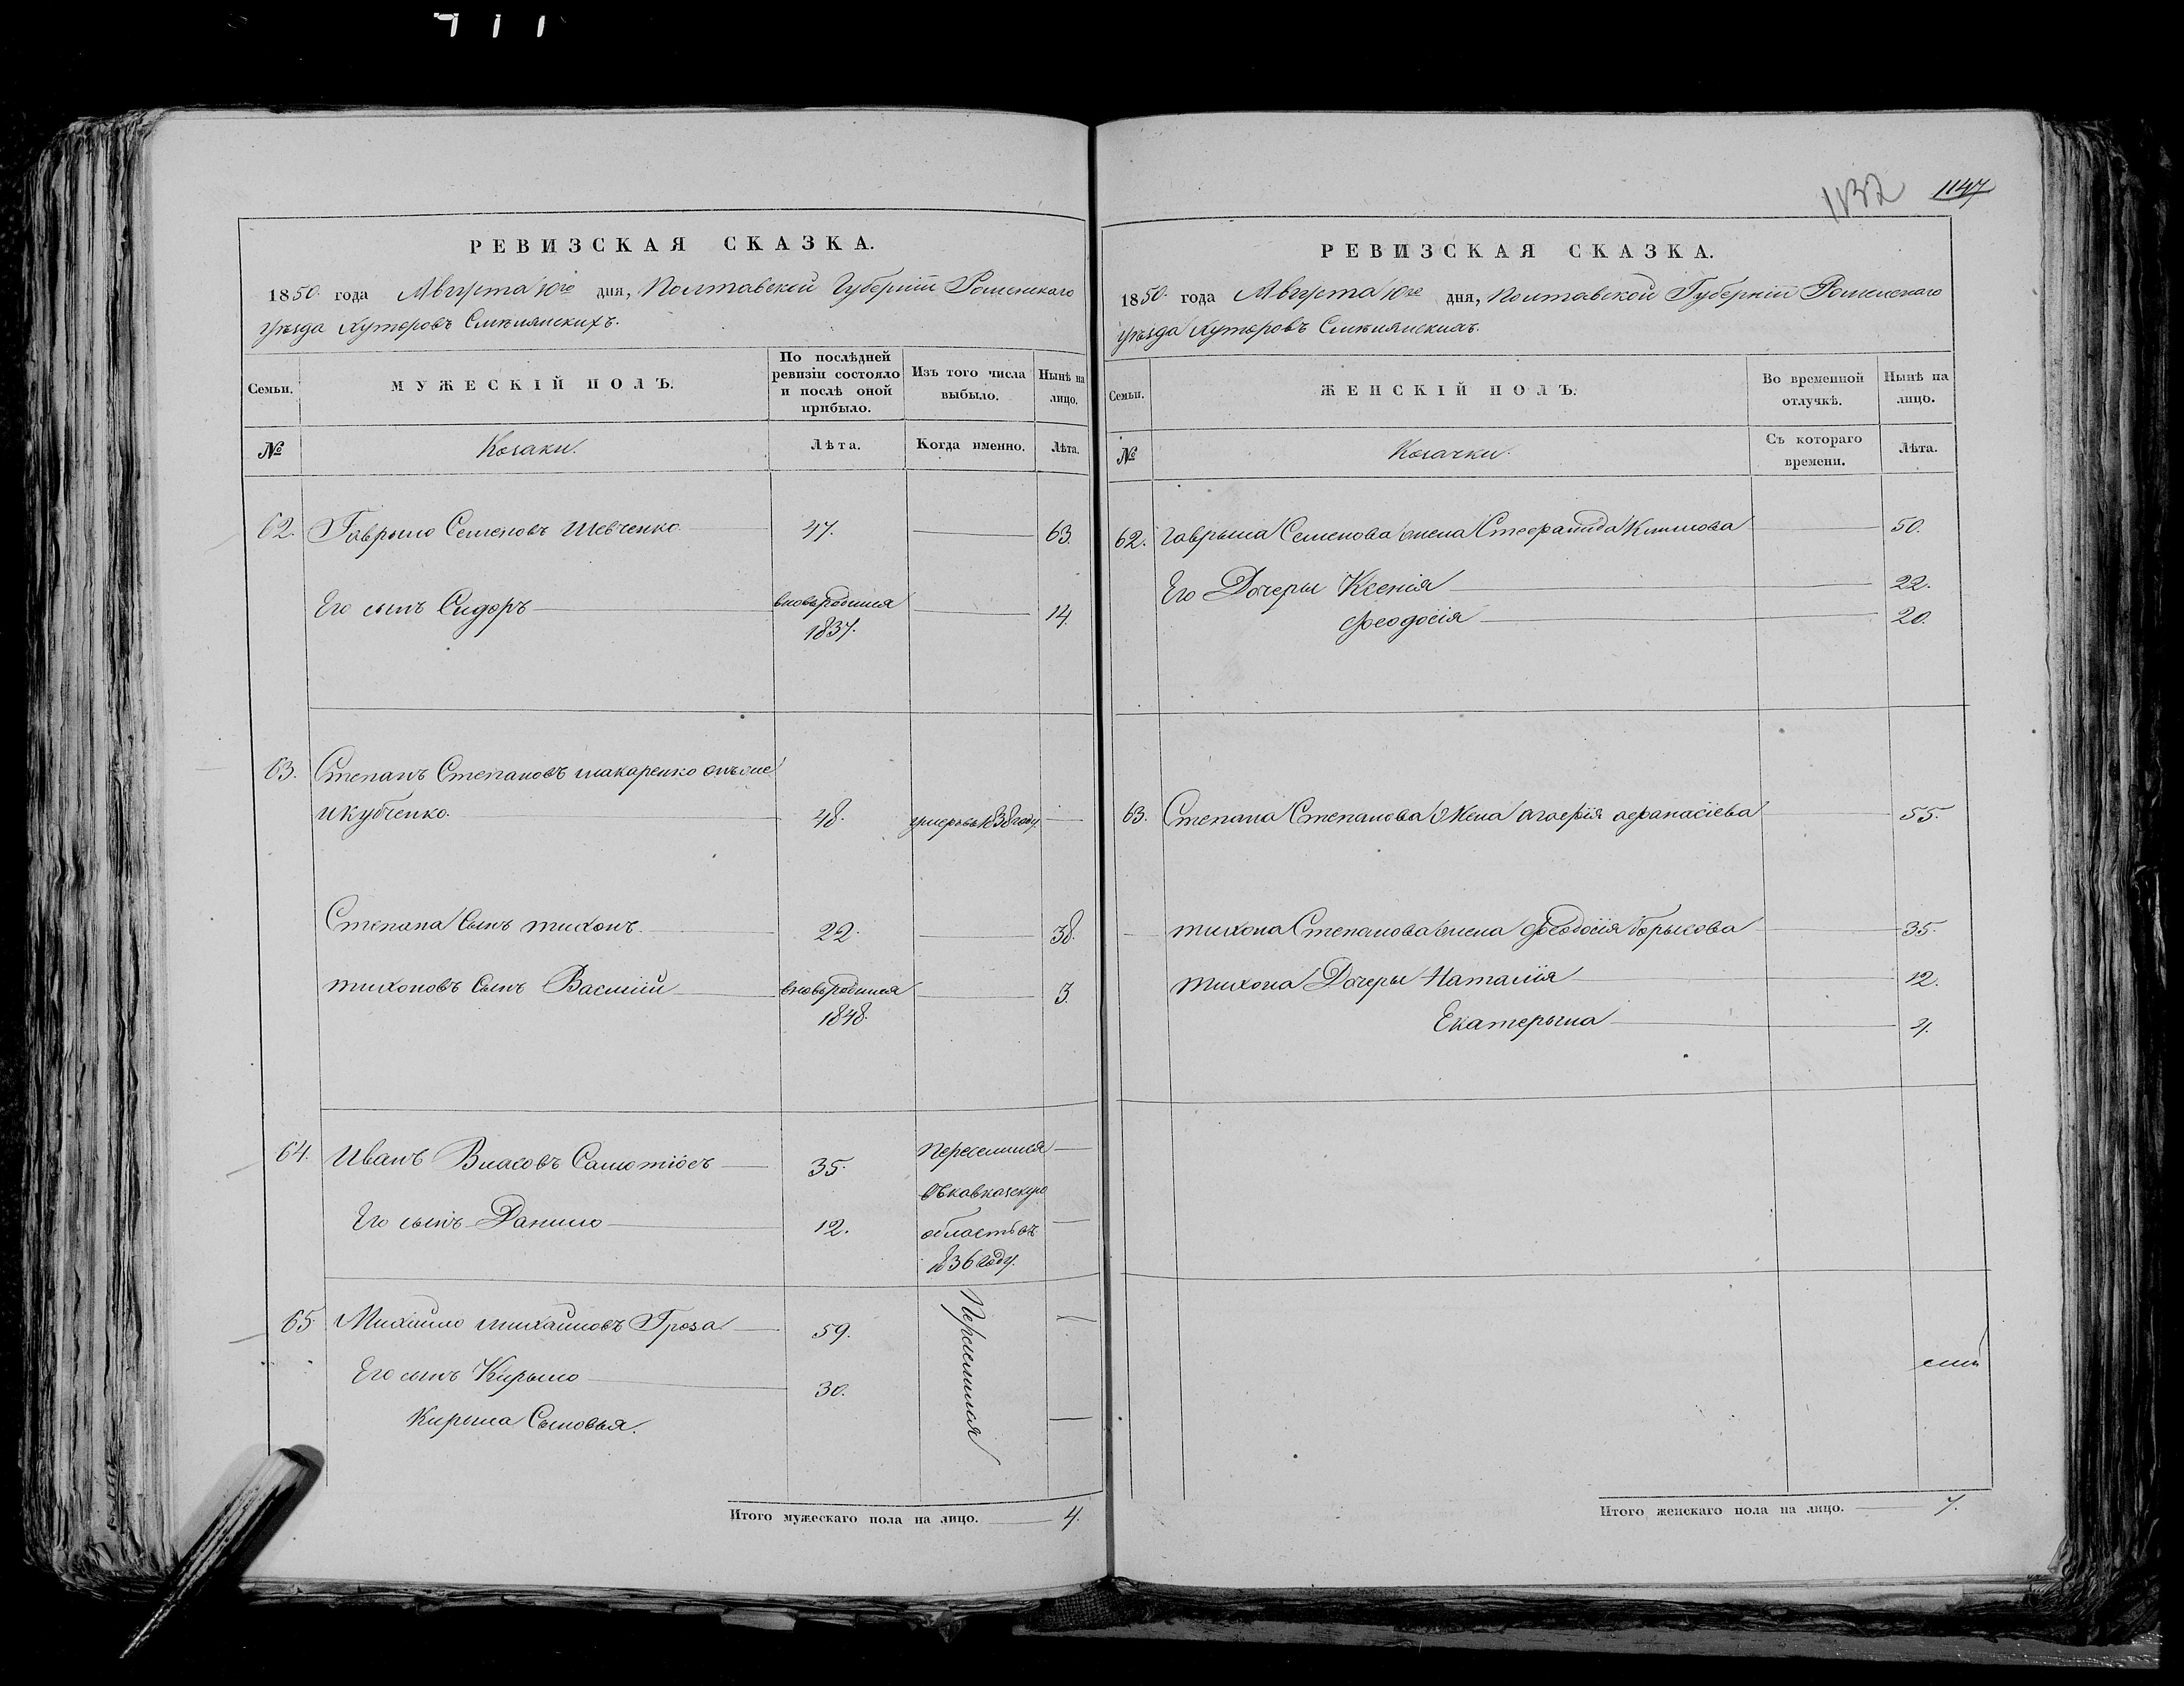 711
1132 1147
РЕВИЗСКАЯ СКАЗКА.
1850 года Августа 10го дня, Полтавской Губерніи Роменскаго
уѣзда Хуторовъ
Семьи. МУЖЕСКІЙ ПОЛЪ. По послѣдней ревизіи состояло и послѣ оной прибыло. Изъ того числа выбыло. Нынѣ на лицо.
№ Козаки. Лѣта. Когда именно. Лѣта.
62. Гаврыло Семеновъ Шевченко 47. 63.
Его сынъ Сидоръ вновьродился 1837. 14.
63. Степанъ Степановъ макаренко онъже
Якубченко. 48. умеръвъ1838году
Степана Сынъ тихонъ 22. 38.
тихоновъ Сынъ Василій вновьродился 1848. 3.
64. Иванъ Власовъ 35. Переселился
въкавказскую
Его сынъ Данило 12. областьвъ
1836году.
65 Михайло михайловъ Гроза 59. Переселился
Его сынъ Кирыло 30.
Кирыла Сыновья.
Итого мужескаго пола на лицо. 4.
РЕВИЗСКАЯ СКАЗКА.
1850 года Августа 10го дня, Полтавской Губерніи Роменскаго
уѣзда Хуторовъ
Семьи. ЖЕНСКІЙ ПОЛЪ. Во временной отлучкѣ. Нынѣ на лицо.
№ Козачки. Съ котораго времени. Лѣта.
62. Гаврыла Семенова жена Стефанида Климова 50.
Его Дочеры Ксенія 22.
Феодосія 20.
63. Степана Степанова Жена Агафія афанасіева 55.
тихона Степанова жена Феодосія борысова 35.
тихона Дочеры Наталія 12.
Екатерына 4.
Итого женскаго пола на лицо. 7.